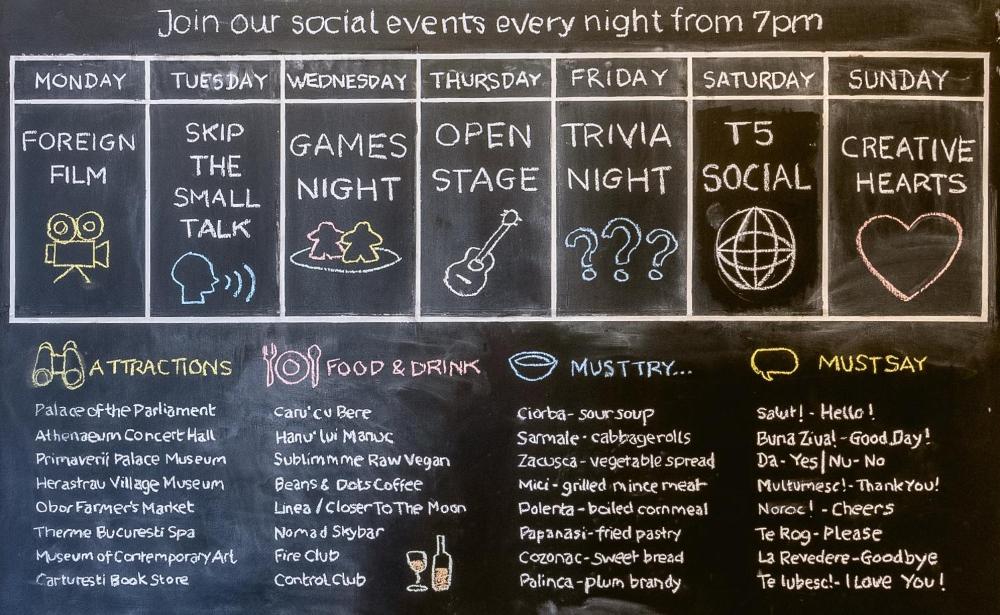 Join our social events every night from 7pm
MONDAY TUESDAY WEDNESDAY THURSDAY FRIDAY SATURDAY SUNDAY
FOREIGN
FILM
SKIP
THE
SMALL
TALK
GAMES
NIGHT
OPEN
STAGE
TRIVIA
NIGHT
???
T5
SOCIAL
CREATIVE
HEARTS
ATTRACTIONS
Palace of the Parliament
Athenaeum Concert Hall
Primaverii Palace Museum
Herastrau Village Museum
Obor Farmer's Market
Therme Bucuresti Spa
Museum of Contemporary Art
Carturesti Book Store
FOOD & DRINK
Caru' cu Bere
Hanu' lui Manuc
Sublimmme Raw Vegan
Beans & Dots Coffee
Linea / Closer To The Moon
Nomad Skybar
Fire Club
Control Club
MUST TRY...
Ciorba - sour soup
Sarmale - cabbage rolls
Zacusca - vegetable spread
Mici - grilled mince meat
Polenta - boiled cornmeal
Papanasi - fried pastry
Cozonac - sweet bread
Palinca - plum brandy
MUST SAY
Salut! - Hello!
Buna Ziua! - Good Day!
Da - Yes | Nu - No
Multumesc! - Thank You!
Noroc! - Cheers
Te Rog - Please
La Revedere - Goodbye
Te Iubesc! - I Love You!